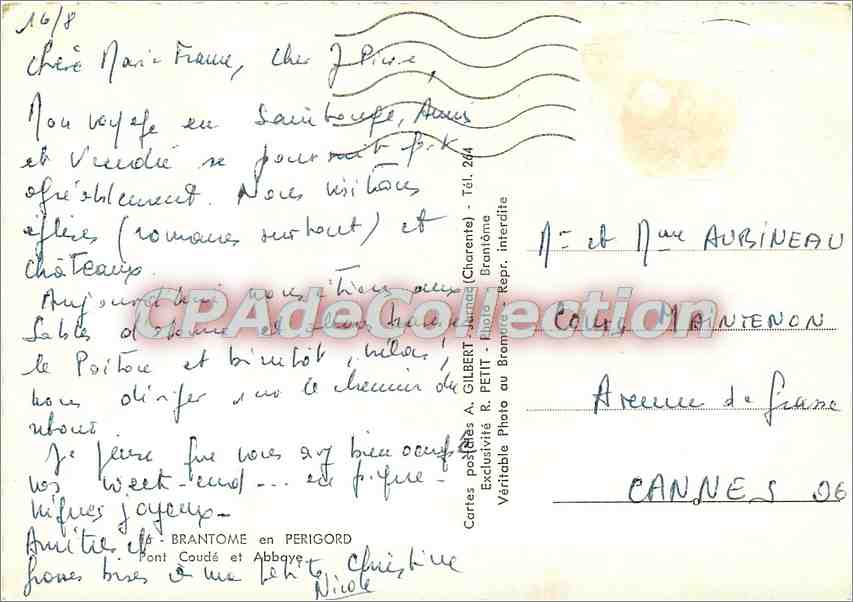 16/8
Chère Marie France, Cher J Pierre,
Mon voyage en Saintonge, Aunis
et Vendée se poursuit fort
agréablement. Nous visitons
églises (romanes surtout) et
châteaux.
Aujourd'hui nous étions aux
Sables d'Olonne et allons
le Poitou et bientôt, hélas,
nous diriger sur le chemin du
retour
Je pense que vous avez bien occupé
vos week-end... en pique-
niques joyeux-
Amitiés et
grosses bises à ma petite Christine
Nicole
- BRANTOME en PERIGORD
Pont Coudé et Abbaye
Cartes postales A. GILBERT - Jarnac (Charente) - Tél. 264
Exclusivité R. PETIT - Photo - Brantôme
Véritable Photo au Bromure - Repr. interdite
Mr et Mme AUBINEAU
Cours MAINTENON
Avenue de Grasse
CANNES 06
CPAdeCollection